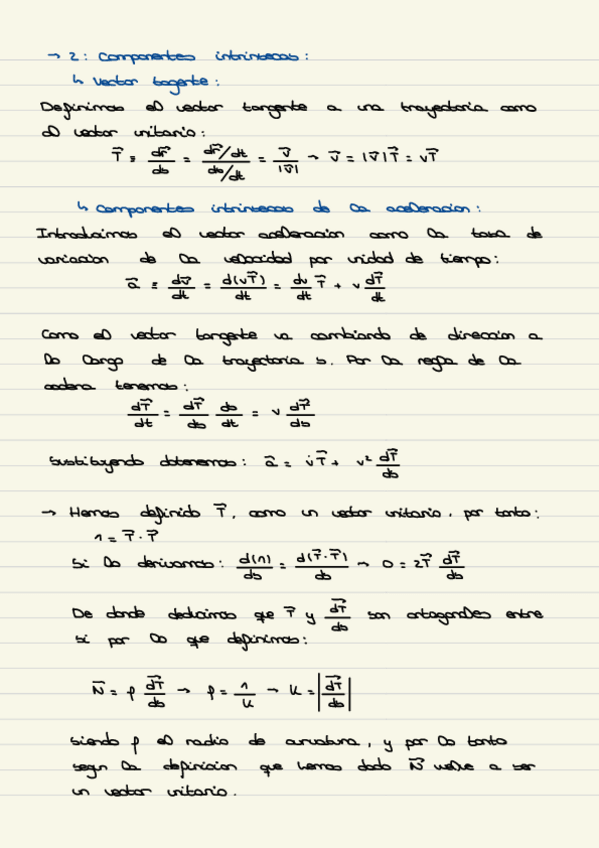 → 2: Componentes intrinsecas:
↳ Vector tagente:
Definimos el vector tangente a una trayectoria como
el vector unitario:
T⃗ ≡ dr⃗/ds = (dr⃗/dt)/(ds/dt) = v⃗/|v⃗| → v⃗ = |v⃗|T⃗ = vT⃗
↳ Componentes intrinsecas de la aceleracion:
Introducimos el vector aceleracion como la tasa de
variacion de la velocidad por unidad de tiempo:
a⃗ ≡ dv⃗/dt = d(vT⃗)/dt = dv/dt T⃗ + v dT⃗/dt
Como el vector tangente va cambiando de direccion a
lo largo de la trayectoria s. Por la regla de la
cadena tenemos:
dT⃗/dt = dT⃗/ds ds/dt = v dT⃗/ds
Sustituyendo obtenemos: a⃗ = v̇T⃗ + v² dT⃗/ds
→ Hemos definido T⃗, como un vector unitario, por tanto:
1 = T⃗ · T⃗
Si lo derivamos: d(1)/ds = d(T⃗·T⃗)/ds → 0 = 2T⃗ dT⃗/ds
De donde deducimos que T⃗ y dT⃗/ds son ortogonales entre
si por lo que definimos:
N⃗ = ρ dT⃗/ds → ρ = 1/K → K = |dT⃗/ds|
Siendo ρ el radio de curvatura, y por lo tanto
segun la definicion que hemos dado N⃗ vuelve a ser
un vector unitario.